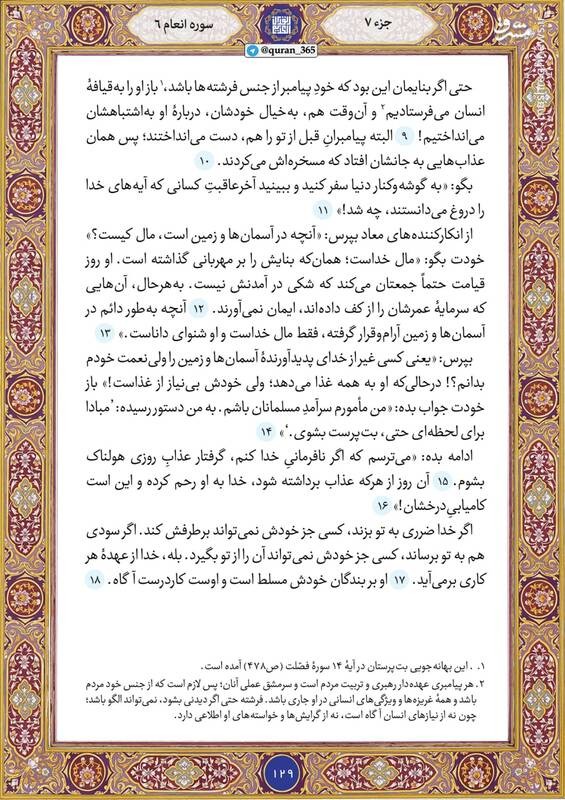 جزء ۷
سوره انعام ۶
@quran_365
مشرق
حتی اگر بنایمان این بود که خودِ پیامبر از جنس فرشته‌ها باشد،۱ باز او را به قیافهٔ
انسان می‌فرستادیم۲ و آن‌وقت هم، به‌خیال خودشان، دربارهٔ او به‌اشتباهشان
می‌انداختیم! ۹ البته پیامبرانِ قبل از تو را هم، دست می‌انداختند؛ پس همان
عذاب‌هایی به جانشان افتاد که مسخره‌اش می‌کردند. ۱۰
بگو: «به گوشه‌وکنار دنیا سفر کنید و ببینید آخرعاقبتِ کسانی که آیه‌های خدا
را دروغ می‌دانستند، چه شد!» ۱۱
از انکارکننده‌های معاد بپرس: «آنچه در آسمان‌ها و زمین است، مال کیست؟»
خودت بگو: «مال خداست؛ همان‌که بنایش را بر مهربانی گذاشته است. او روز
قیامت حتماً جمعتان می‌کند که شکی در آمدنش نیست. به‌هرحال، آن‌هایی
که سرمایهٔ عمرشان را از کف داده‌اند، ایمان نمی‌آورند. ۱۲ آنچه به‌طور دائم در
آسمان‌ها و زمین آرام‌وقرار گرفته، فقط مال خداست و او شنوای داناست.» ۱۳
بپرس: «یعنی کسی غیر از خدای پدیدآورندهٔ آسمان‌ها و زمین را ولی‌نعمت خودم
بدانم؟! درحالی‌که او به همه غذا می‌دهد؛ ولی خودش بی‌نیاز از غذاست!» باز
خودت جواب بده: «من مأمورم سرآمدِ مسلمانان باشم. به من دستور رسیده: ‘مبادا
برای لحظه‌ای حتی، بت‌پرست بشوی.’» ۱۴
ادامه بده: «می‌ترسم که اگر نافرمانیِ خدا کنم، گرفتار عذابِ روزی هولناک
بشوم. ۱۵ آن روز از هرکه عذاب برداشته شود، خدا به او رحم کرده و این است
کامیابیِ درخشان!» ۱۶
اگر خدا ضرری به تو بزند، کسی جز خودش نمی‌تواند برطرفش کند. اگر سودی
هم به تو برساند، کسی جز خودش نمی‌تواند آن را از تو بگیرد. بله، خدا از عهدهٔ هر
کاری برمی‌آید. ۱۷ او بر بندگان خودش مسلط است و اوست کاردرست آگاه. ۱۸
۱. . این بهانه‌جویی بت‌پرستان در آیهٔ ۱۴ سورهٔ فصّلت (ص۴۷۸) آمده است.
۲. هر پیامبری عهده‌دار رهبری و تربیت مردم است و سرمشق عملی آنان؛ پس لازم است که از جنس خود مردم
باشد و همهٔ غریزه‌ها و ویژگی‌های انسانی در او جاری باشد. فرشته حتی اگر دیدنی بشود، نمی‌تواند الگو باشد؛
چون نه از نیازهای انسان آگاه است، نه از گرایش‌ها و خواسته‌های او اطلاعی دارد.
۱۲۹